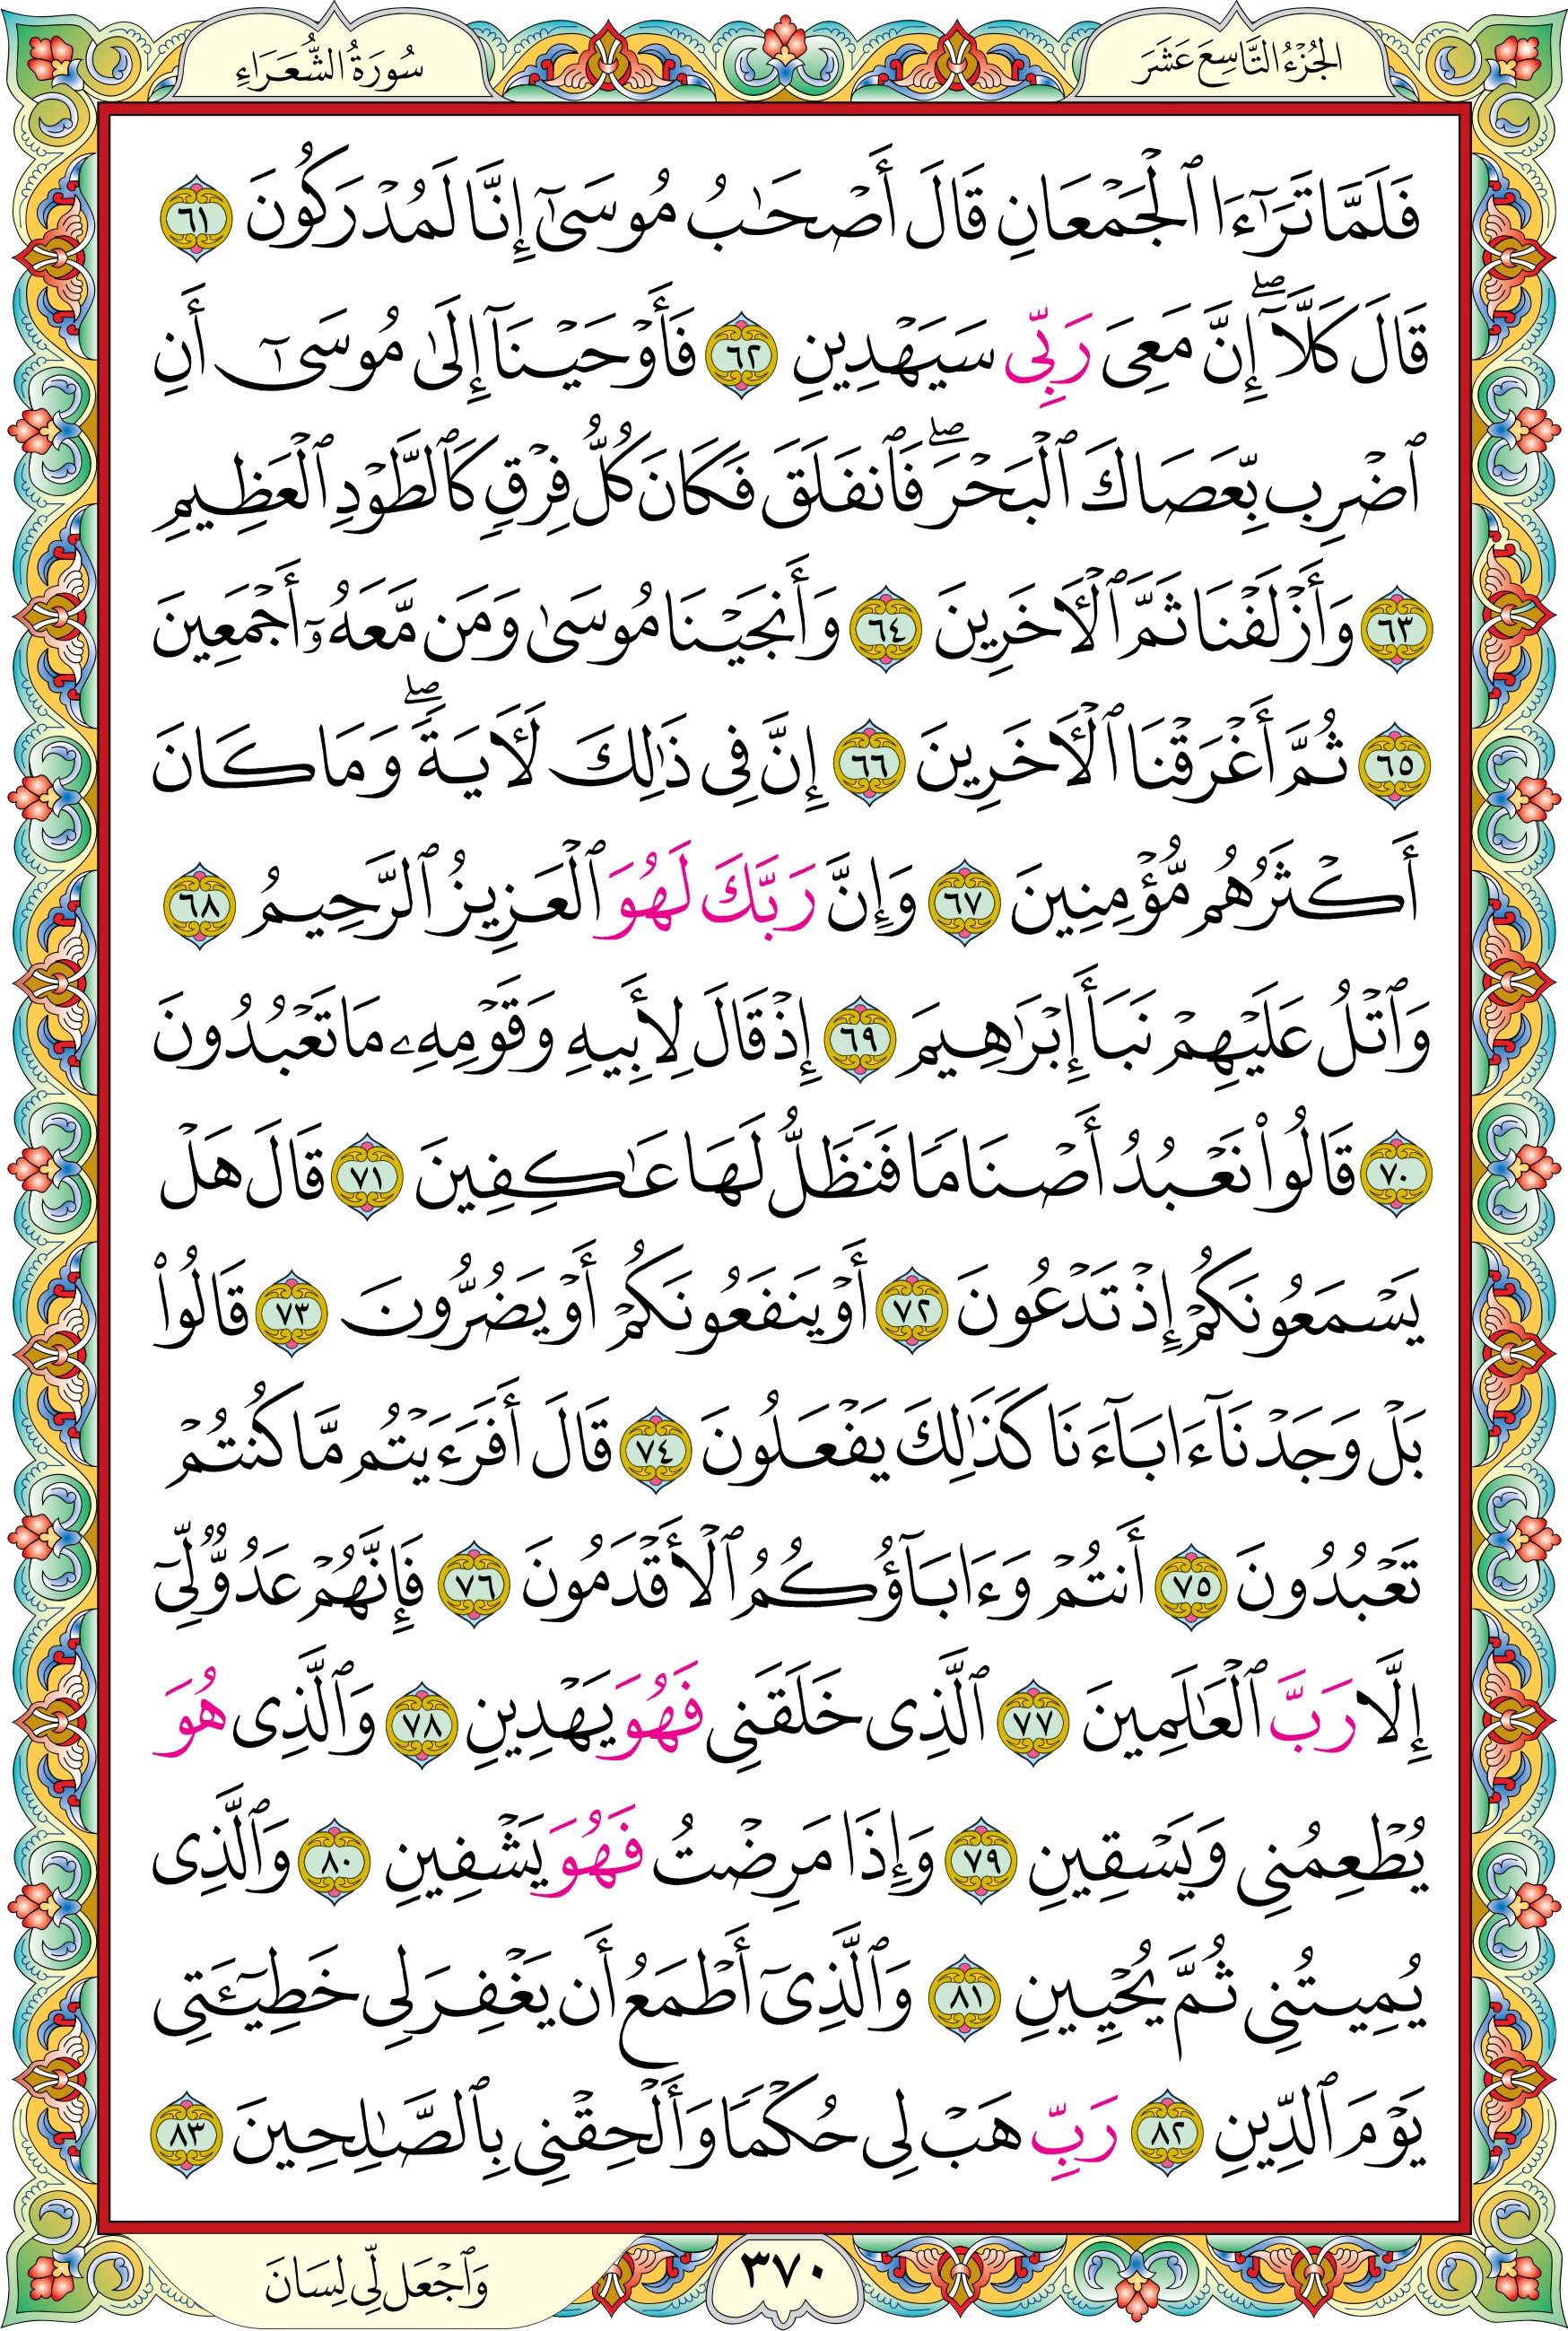 الجُزْءُ التَّاسِعَ عَشَرَ
سُورَةُ الشُّعَرَاءِ
فَلَمَّا تَرَٰٓءَا ٱلْجَمْعَانِ قَالَ أَصْحَٰبُ مُوسَىٰٓ إِنَّا لَمُدْرَكُونَ ٦١
قَالَ كَلَّآ ۖ إِنَّ مَعِىَ رَبِّى سَيَهْدِينِ ٦٢ فَأَوْحَيْنَآ إِلَىٰ مُوسَىٰٓ أَنِ
ٱضْرِب بِّعَصَاكَ ٱلْبَحْرَ ۖ فَٱنفَلَقَ فَكَانَ كُلُّ فِرْقٍ كَٱلطَّوْدِ ٱلْعَظِيمِ
٦٣ وَأَزْلَفْنَا ثَمَّ ٱلْأَخَرِينَ ٦٤ وَأَنجَيْنَا مُوسَىٰ وَمَن مَّعَهُۥٓ أَجْمَعِينَ
٦٥ ثُمَّ أَغْرَقْنَا ٱلْأَخَرِينَ ٦٦ إِنَّ فِى ذَٰلِكَ لَأَيَةً ۖ وَمَا كَانَ
أَكْثَرُهُم مُّؤْمِنِينَ ٦٧ وَإِنَّ رَبَّكَ لَهُوَ ٱلْعَزِيزُ ٱلرَّحِيمُ ٦٨
وَٱتْلُ عَلَيْهِمْ نَبَأَ إِبْرَٰهِيمَ ٦٩ إِذْ قَالَ لِأَبِيهِ وَقَوْمِهِۦ مَا تَعْبُدُونَ
٧٠ قَالُوا۟ نَعْبُدُ أَصْنَامًا فَنَظَلُّ لَهَا عَٰكِفِينَ ٧١ قَالَ هَلْ
يَسْمَعُونَكُمْ إِذْ تَدْعُونَ ٧٢ أَوْ يَنفَعُونَكُمْ أَوْ يَضُرُّونَ ٧٣ قَالُوا۟
بَلْ وَجَدْنَآ ءَابَآءَنَا كَذَٰلِكَ يَفْعَلُونَ ٧٤ قَالَ أَفَرَءَيْتُم مَّا كُنتُمْ
تَعْبُدُونَ ٧٥ أَنتُمْ وَءَابَآؤُكُمُ ٱلْأَقْدَمُونَ ٧٦ فَإِنَّهُمْ عَدُوٌّ لِّىٓ
إِلَّا رَبَّ ٱلْعَٰلَمِينَ ٧٧ ٱلَّذِى خَلَقَنِى فَهُوَ يَهْدِينِ ٧٨ وَٱلَّذِى هُوَ
يُطْعِمُنِى وَيَسْقِينِ ٧٩ وَإِذَا مَرِضْتُ فَهُوَ يَشْفِينِ ٨٠ وَٱلَّذِى
يُمِيتُنِى ثُمَّ يُحْيِينِ ٨١ وَٱلَّذِىٓ أَطْمَعُ أَن يَغْفِرَ لِى خَطِيٓـَٔتِى
يَوْمَ ٱلدِّينِ ٨٢ رَبِّ هَبْ لِى حُكْمًا وَأَلْحِقْنِى بِٱلصَّٰلِحِينَ ٨٣
٣٧٠
وَٱجْعَل لِّى لِسَانَ